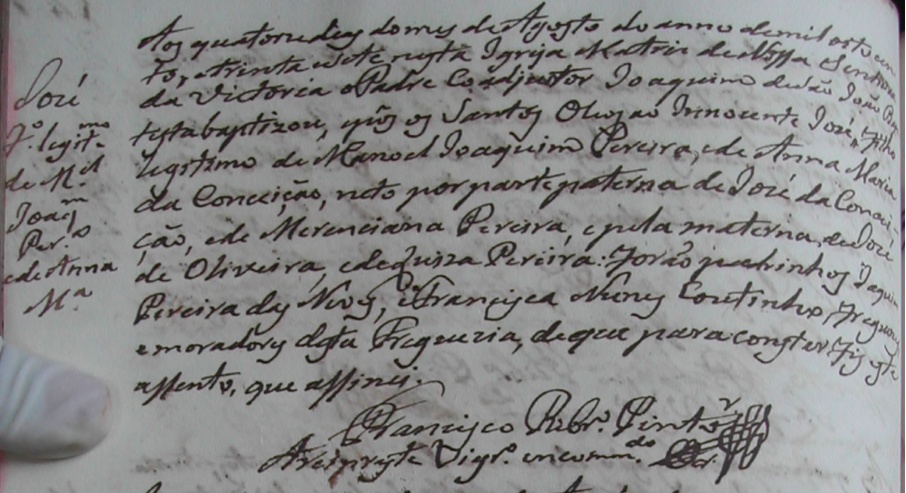 José
Fº. legitmo
de Mel
Joaqm
Perª
e de Anna
Mª
Aos quatorze dias do mes de Agosto do anno de mil oito cen
tos, e trinta e sete nesta Igreja Matriz de Nossa Senhora
da Victoria o Padre Coadjuctor Joaquim de São João Bap
tista baptizou, e pôs os Santos Oleos ao Innocente José, Filho
legitimo de Manoel Joaquim Pereira, e de Anna Maria
da Conceição, neto por parte paterna de José da Concei
ção, e de Merenciana Pereira, e pela materna, de José
de Oliveira, e de Pereira: Forão padrinhos Joaquim
Pereira das Neves, e Francisca Nunes Coutinho, Freguezes
e moradores desta Freguezia, de que para constar fis este
assento, que assinei.
Francisco Ribrº. Pintor
Arcipreste Vigrº. encommdo